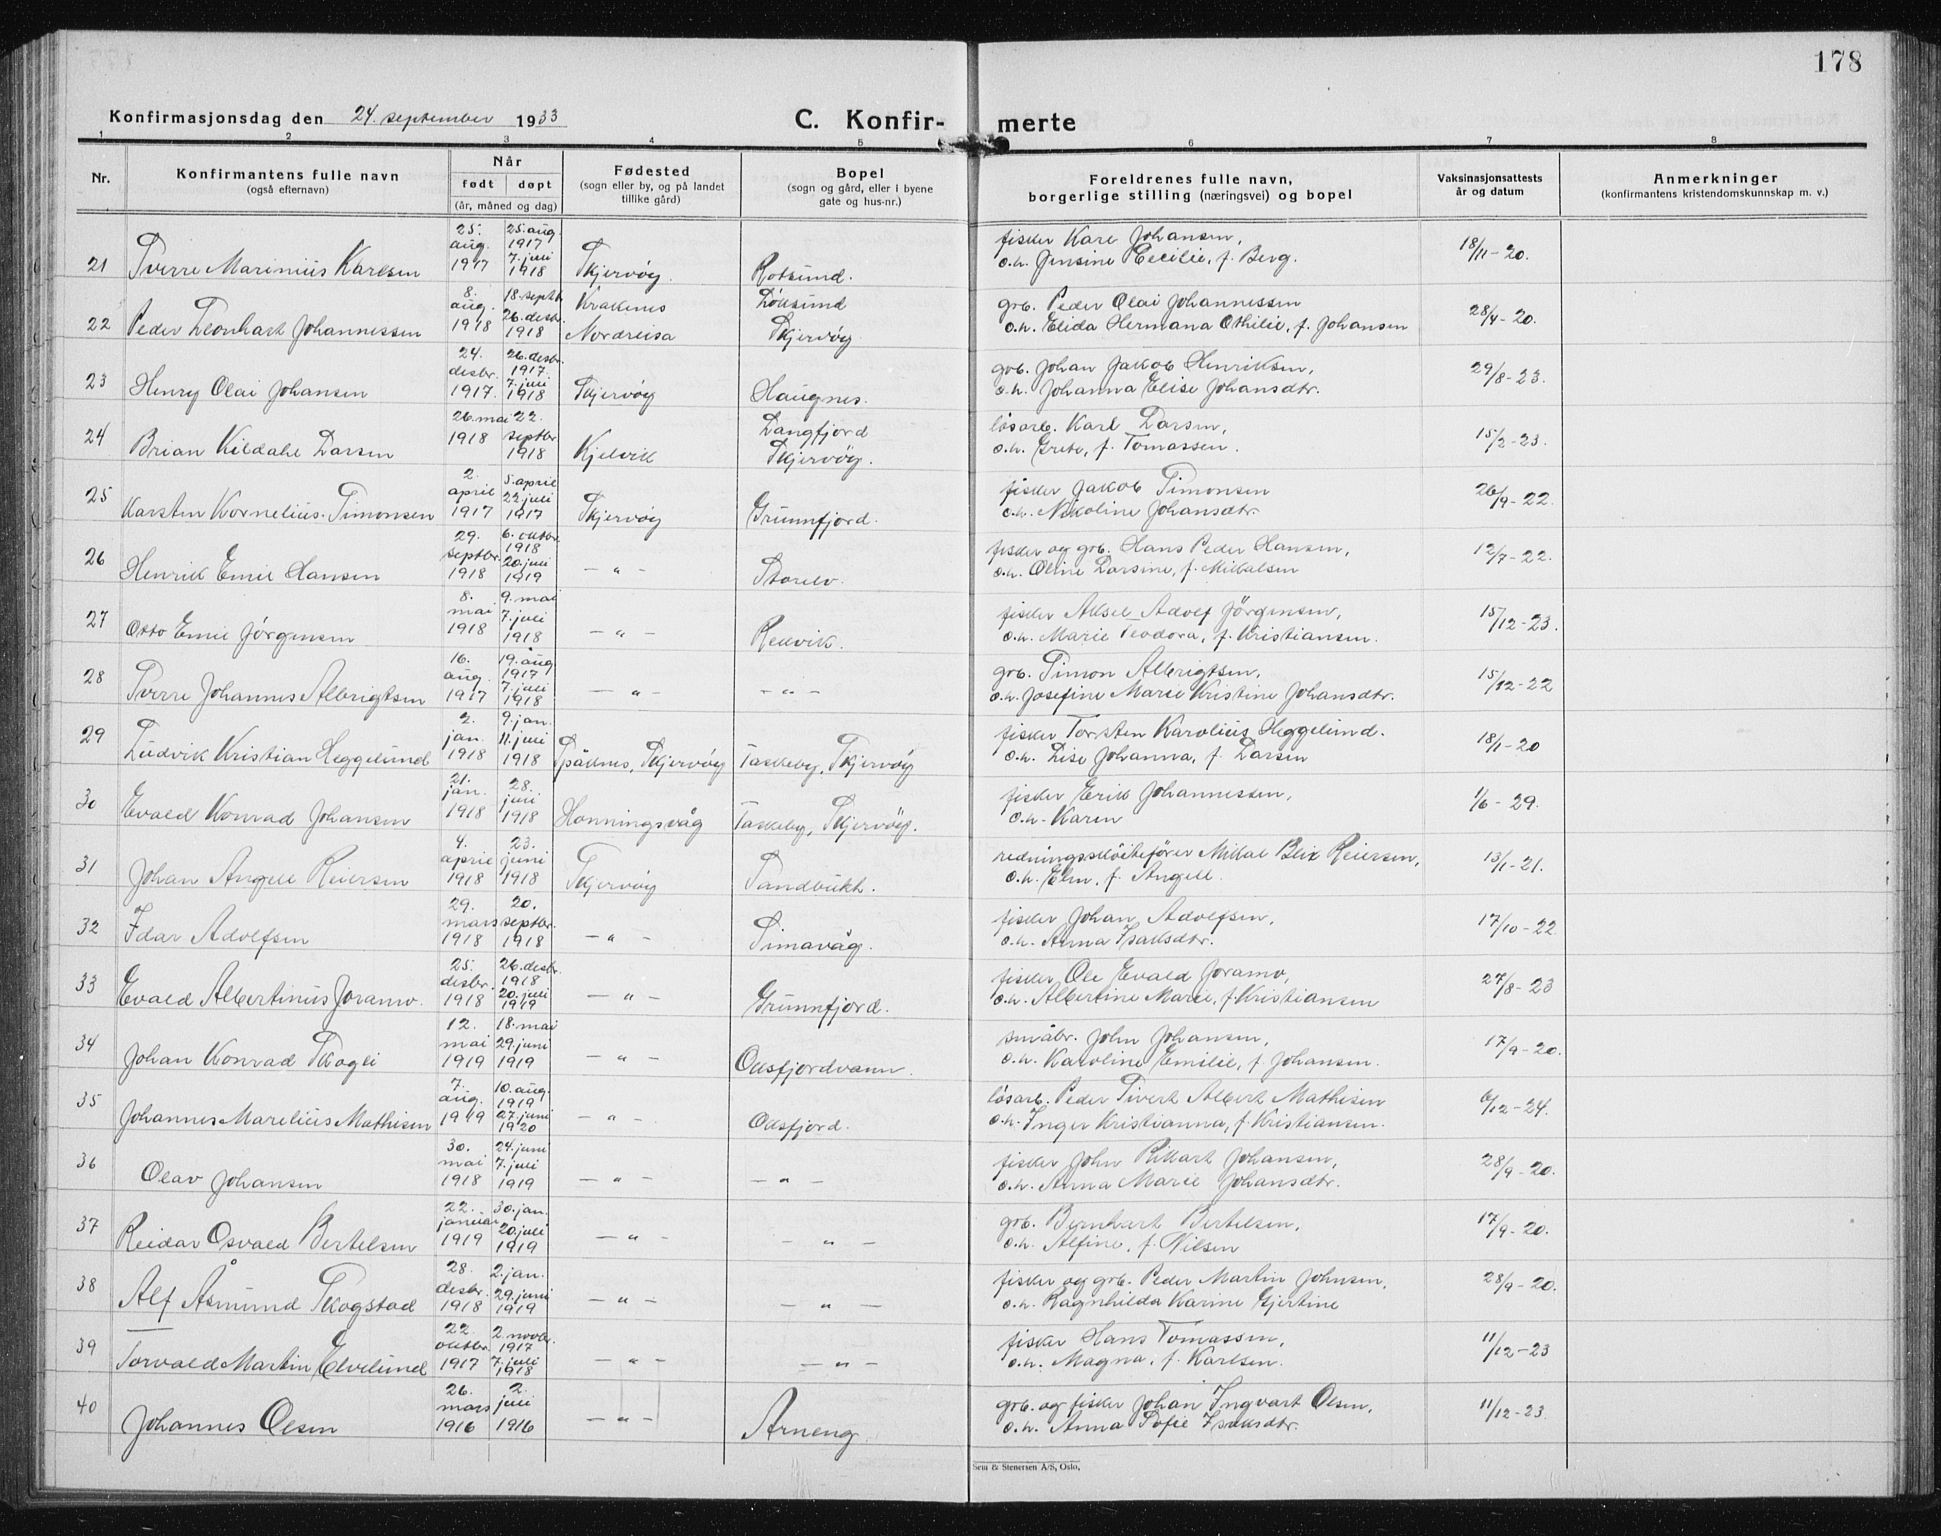 178
Konfirmasjonsdag den 24. september 1933
C. Konfir- merte
1 2 3 4 5 6 7 8
Nr.
Konfirmantens fulle navn
(også efternavn)
Når
født døpt
(år, måned og dag)
Fødested
(sogn eller by, og på landet
tillike gård)
Bopel
(sogn og gård, eller i byene
gate og hus-nr.)
Foreldrenes fulle navn,
borgerlige stilling (næringsvei) og bopel
Vaksinasjonsattests
år og datum
Anmerkninger
(konfirmantens kristendomskunnskap m. v.)
21 Sverre Marinius Karlsen 25. aug. 1917 25. aug. 1917 7. juli 1918 Skjervøy Rotsund. fisker Karl Johansen, o.h. Jensine Cecilie, f. Berg. 18/11-20.
22 Peder Leonhart Johannessen 8. aug. 1918 18. septb. 26. desbr. 1918 Krakenes Nordreisa Løksund Skjervøy grb. Peder Olai Johannessen o.h. Elida Hermana Othilie, f. Johansen 28/4-20.
23 Henry Olai Johansen 24. desbr. 1917. 26. desbr. 1917. 7. juli 1918 Skjervøy Haugnes. grb. Johan Jakob Henriksen, o.h. Johanna Elise Johansdtr. 29/8-23.
24 Brian Kildahl Larsen 26. mai 1918 22. septbr 1918 Kjelvik Langfjord Skjervøy. løsarb. Karl Larsen, o.h. Grete, f. Tomassen. 15/2-23.
25 Karsten Kornelius Simonsen 2. april 1917 5. april 22. juli 1917 Skjervøy Grunnfjord. fisker Jakob Simonsen o.h. Nikoline Johansdtr. 26/9-22.
26 Henrik Emil Hansen 29. septbr. 1918 6. oktbr. 1918 20. juli 1919 -"- Storelv. fisker og grb. Hans Peder Hansen, o.h. Oline Larsine, f. Mikkalsen 12/7-22.
27 Otto Emil Jørgensen 8. mai 1918 9. mai 7. juli 1918 -"- Reivik. fisker Aksel Adolf Jörgensen, o.h. Marie Teodora, f. Kristiansen. 15/12-23.
28 Sverre Johannes Albrigtsen 16. aug. 1917 19. aug. 1917 7. juli 1918 -"- -"- grb. Simon Albrigtsen, o.h. Josefine Marie Kristine Johansdtr. 15/12-22
29 Ludvik Kristian Heggelund 2. jan. 1918 9. jan. 11. juli 1918 Spåknes, Skjervøy Taskeby, Skjervøy fisker Torsten Karolius Heggelund. o.h. Lise Johanna, f. Larsen 18/1-20
30 Evald Konrad Johansen 21. jan. 1918 28. juli 1918 Honningsvåg Taskeby, Skjervöy. fisker Erik Johannessen, o.h. Karen 1/6-29.
31 Johan Angell Reiersen 4. april 1918 23. juni 1918 Skjervøy Sandbukt. redningsskøitefører Mikal Blix Reiersen, o.h. Elen, f. Angell. 13/1-21.
32 Idar Adolfsen 29. mars 1918 20. septbr. 1918 -"- Simavåg. fisker Johan Adolfsen, o.h. Anna Isaksdtr. 17/10-22
33 Evald Albertinus Joramo. 25. desbr. 1918 26. desbr. 1918 20. juli 1919 -"- Grunnfjord. fisker Ole Evald Joramo, o.h. Albertine Marie, f. Kristiansen 27/8-23
34 Johan Konrad Skogli 12. mai 1919 18. mai 29. juni 1919 -"- Oksfjordvann. småbr. John Johansen, o.h. Karoline Emilie, f. Johansen. 17/9-20.
35 Johannes Marelius Mathisen 7. aug. 1919 10. aug. 1919 27. juni 1920 -"- Oksfjord. løsarb. Peder Sivert Albert Mathisen o.h. Inger Kristianna, f. Kristiansen. 6/12-24.
36 Olav Johansen 30. mai 1918 24. juni 7. juli 1919 -"- -"- fisker John Rikart Johansen, o.h. Anna Marie Johansdtr. 28/9-20.
37 Reidar Osvald Bertelsen 22. januar 1919 30. jan. 20. juli 1919 -"- -"- grb. Bernhart Bertelsen, o.h. Alfine, f. Nilsen 17/9-20.
38 Alf Åsmund Skogstad 28. desbr. 1918 2. jan. 29. juni 1919 -"- -"- fisker og grb. Peder Martin Johnsen, o.h. Ragnhilda Karine Gjertine 28/9-20.
39 Torvald Martin Elvelund 22. oktbr. 1917 2. novbr. 1917 7. juli 1918 -"- -"- fisker Hans Tomassen, o.h. Magna, f. Karlsen. 11/12-23
40 Johannes Olsen 26. mars 1916 2. juli 1916 -"- Arneng. grb. og fisker Johan Ingvart Olsen, o.h. Anna Sofie Isaksdtr. 11/12-23.
Sem & Stenersen A/S, Oslo.